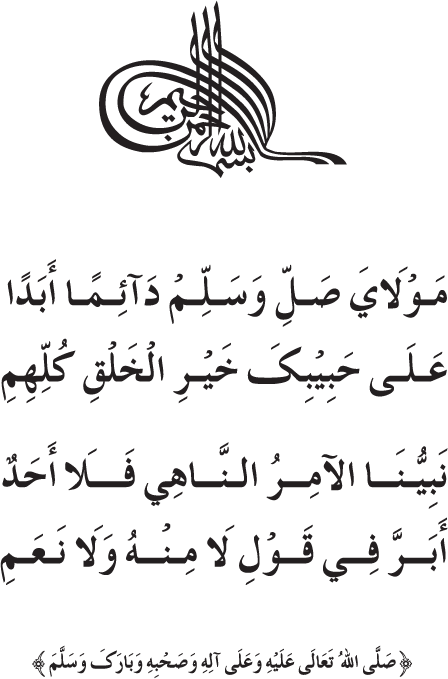 بسم الله الرحمن الرحيم
مَوْلَايَ صَلِّ وَسَلِّمْ دَآئِمًا أَبَدًا
عَلَى حَبِيْبِکَ خَيْرِ الْخَلْقِ كُلِّهِمِ
نَبِيُّنَا الآمِرُ النَّاهِي فَلَا أَحَدٌ
أَبَرَّ فِي قَوْلِ لَا مِنْهُ وَلَا نَعَمِ
﴿ صَلَّى اللهُ تَعَالَى عَلَيْهِ وَعَلَى آلِهِ وَصَحْبِهِ وَبَارَکَ وَسَلَّمَ ﴾